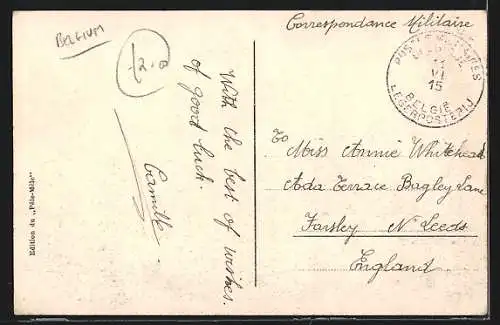 BELGIUM
2.-
Correspondance Militaire
POSTES MILITAIRES
BELGIQUE
11
VI
15
BELGIE
LEGERPOSTERIJ
With the best of wishes
of good luck.
Camille.
To
Miss Annie Whitehead
Ada Terrace Bagley Lane
Farsley N. Leeds
England
Edition du „Pêle-Mêle"